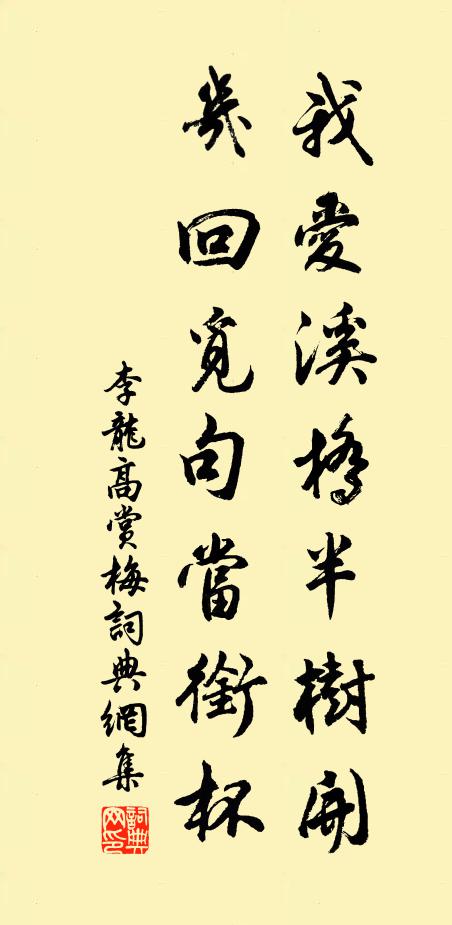 我愛溪橋半樹開
幾回覓句當銜杯
李龍高賞梅詞典網集
詞典網印